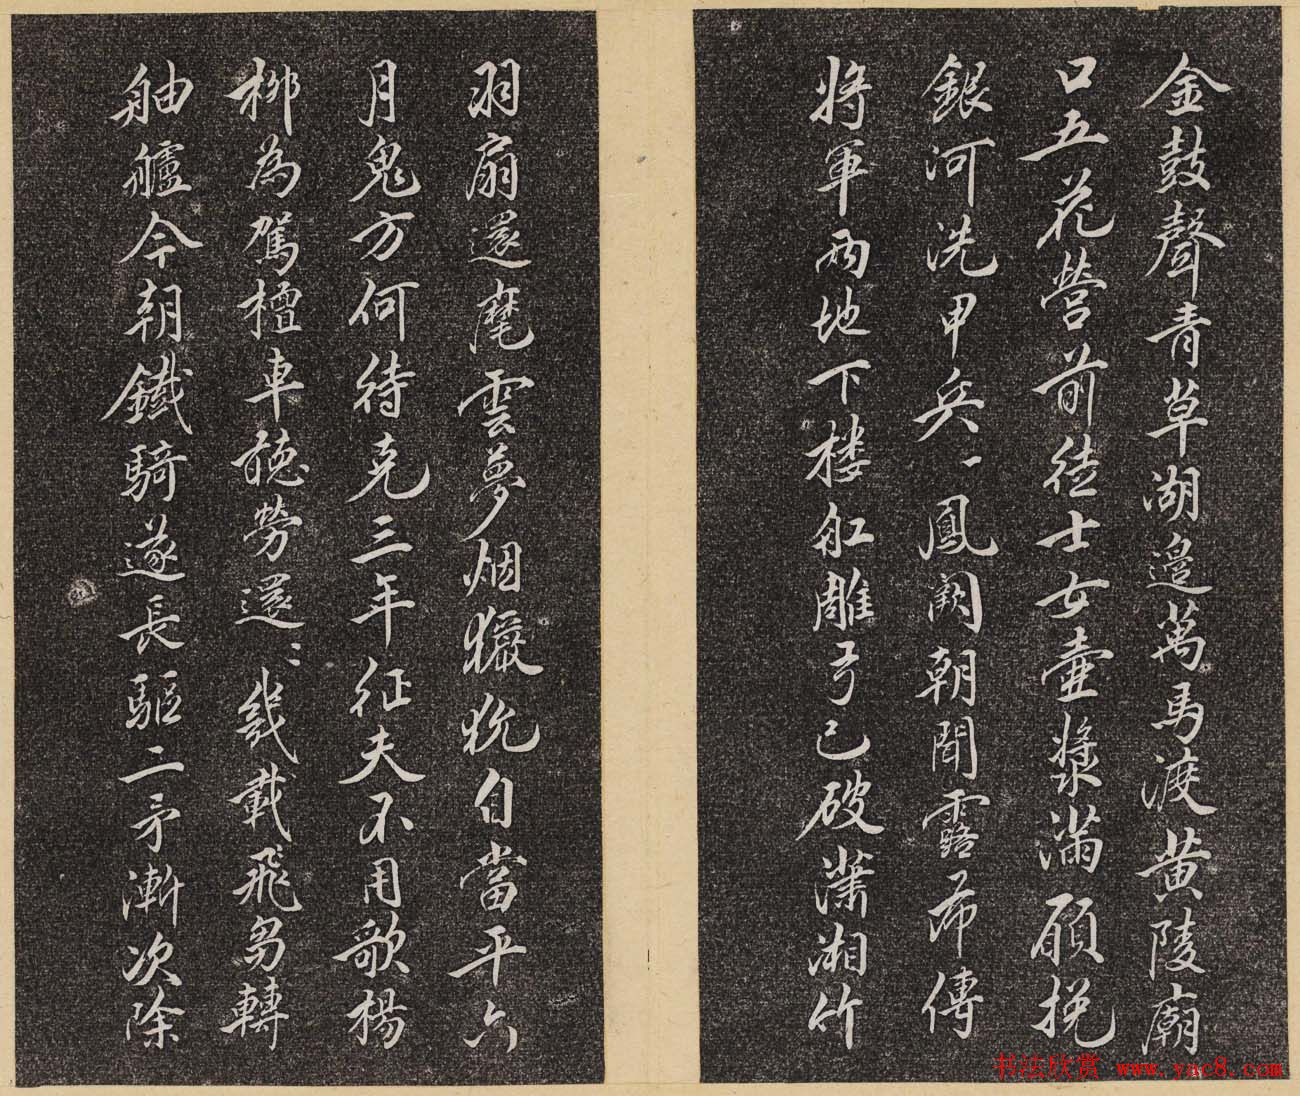 金鼓聲青草湖邉萬馬渡黄陵廟
口五花營前徒士女壷漿滿願挽
銀河洗甲兵、鳳闕朝聞露布傳
將軍兩地下楼舡雕弓已破瀟湘竹
羽扇還麾雲夢烟玁狁自當平六
月鬼方何待克三年征夫不用歌楊
栁為駕檀車聴勞還〻幾載飛芻轉
舳艫今朝鐵騎遂長驅二矛漸次除
书法欣赏 www.yac8.com